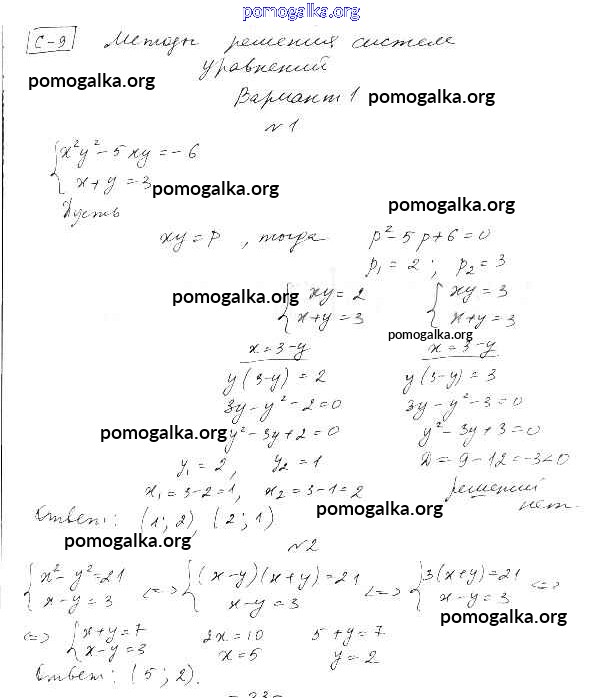 pomogalka.org
С-9 Методы решения систем
уравнений
pomogalka.org
Вариант 1 pomogalka.org
№1
{x²y² - 5xy = -6
x + y = 3 pomogalka.org
Пусть pomogalka.org
xy = p, тогда p² - 5p + 6 = 0
p₁ = 2; p₂ = 3
pomogalka.org {xy = 2 {xy = 3
x + y = 3 x + y = 3
pomogalka.org
x = 3 - y x = 3 - y
y(3 - y) = 2 y(3 - y) = 3
3y - y² - 2 = 0 3y - y² - 3 = 0
pomogalka.org y² - 3y + 2 = 0 y² - 3y + 3 = 0
y₁ = 2, y₂ = 1 D = 9 - 12 = -3 < 0
x₁ = 3 - 2 = 1, x₂ = 3 - 1 = 2 решений
нет.
Ответ: (1; 2), (2; 1) pomogalka.org
pomogalka.org №2
{x² - y² = 21 <=> {(x - y)(x + y) = 21 <=> {3(x + y) = 21 <=>
x - y = 3 x - y = 3 x - y = 3
pomogalka.org
<=> {x + y = 7 2x = 10 5 + y = 7
x - y = 3 x = 5 y = 2
Ответ: (5; 2).